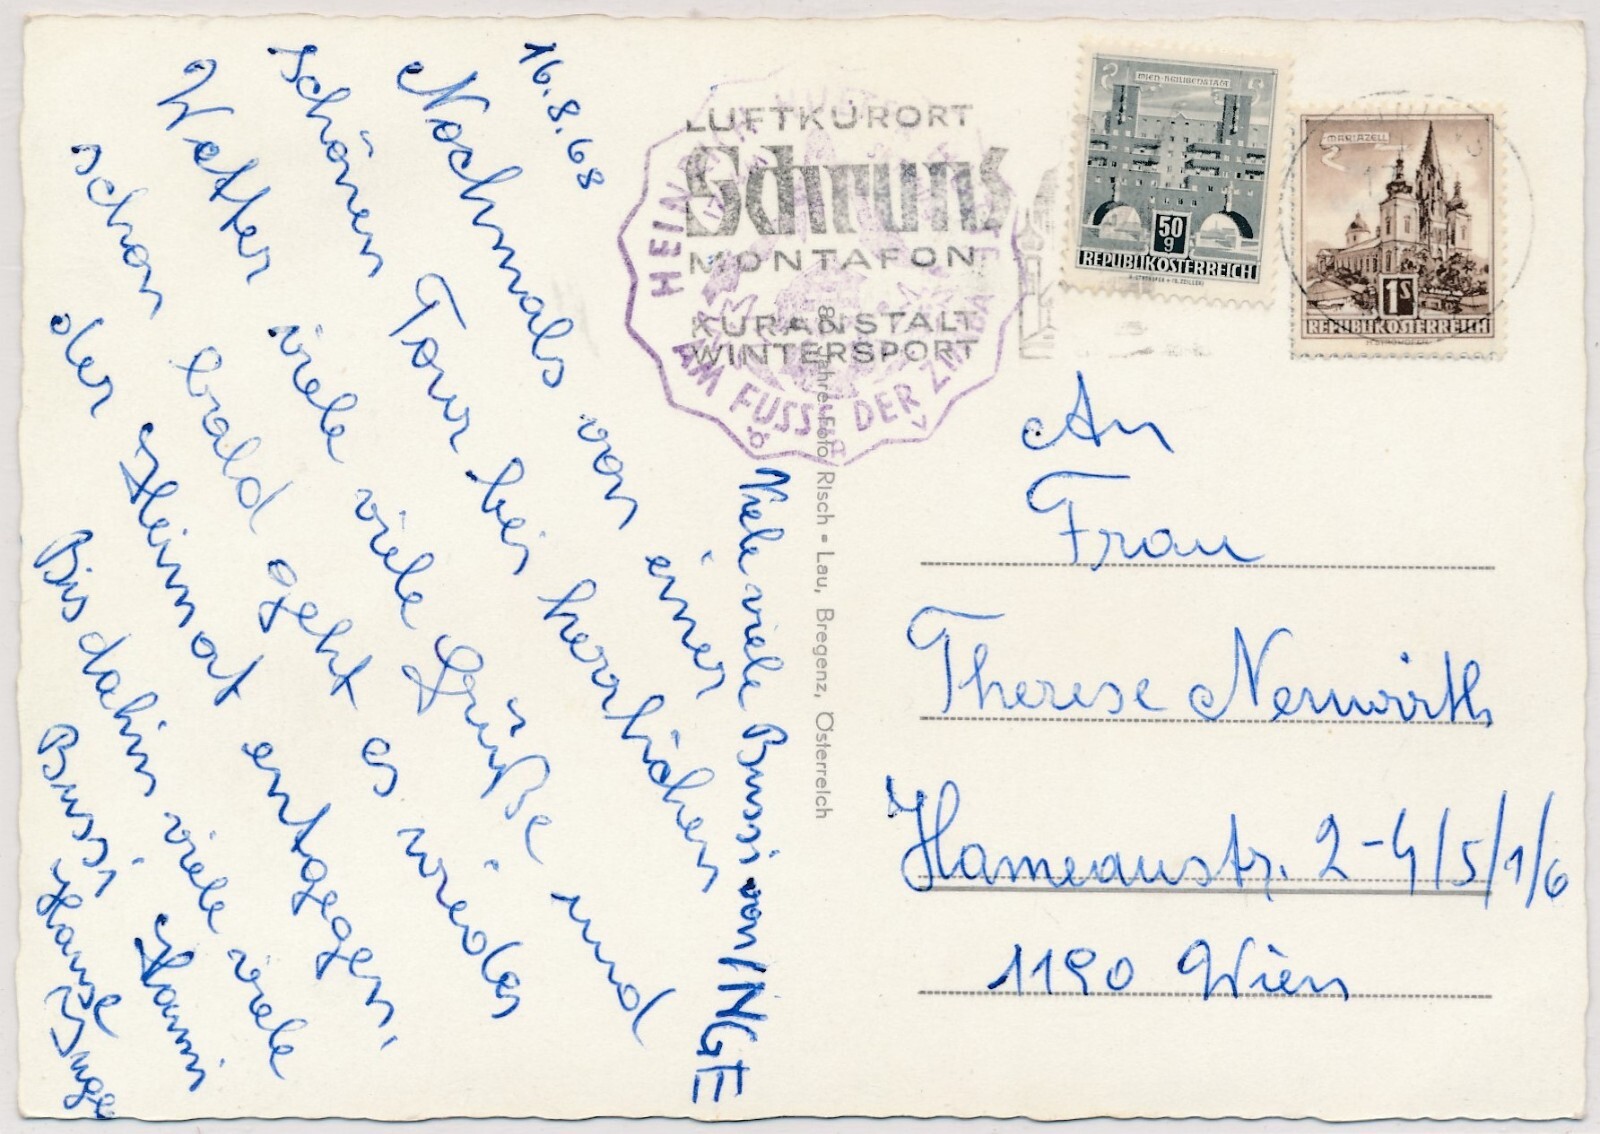 16.8.68
Nochmals von einer
schönen Tour bei herrlichen
Wetter viele viele Grüße und
schon bald geht es wieder
der Heimat entgegen.
Bis dahin viele viele
Bussi Hanni
Hansl
Inge
Viele viele Bussi von INGE
LUFTKURORT
Schruns
MONTAFON
KURANSTALT
WINTERSPORT
HEIN
AM FUSSE DER ZIM
Jahre Foto Risch • Lau, Bregenz, Österreich
WIEN-HEILIGENSTADT
50
g
REPUBLIK ÖSTERREICH
MARIAZELL
1S
REPUBLIK ÖSTERREICH
An
Frau
Therese Neuwirth
Hameaustr. 2-4/5/1/6
1190 Wien